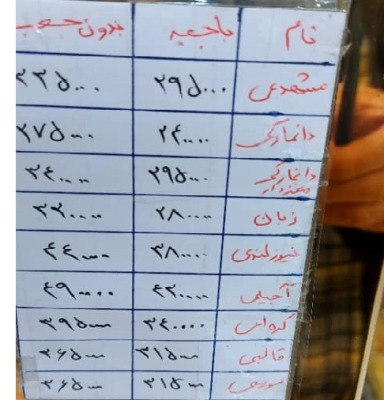 نام با جعبه بدون جعب
مشهدی ۲۹۵۰۰۰ ۳۳۵۰۰۰
دانمارکی ۲۴۰۰۰۰ ۲۷۵۰۰۰
دانمارکی مغزدار ۲۹۵۰۰۰ ۳۴۰۰۰۰
زبان ۲۸۰۰۰۰ ۳۲۰۰۰۰
نیوزلندی ۳۸۰۰۰۰ ۴۴۰۰۰۰
آجیلی ۴۲۰۰۰۰ ۴۹۰۰۰۰
۳۴۰۰۰۰ ۳۹۵۰۰۰
قالبی ۳۱۵۰۰۰ ۳۶۵۰۰۰
۳۱۵۰۰۰ ۳۶۵۰۰۰